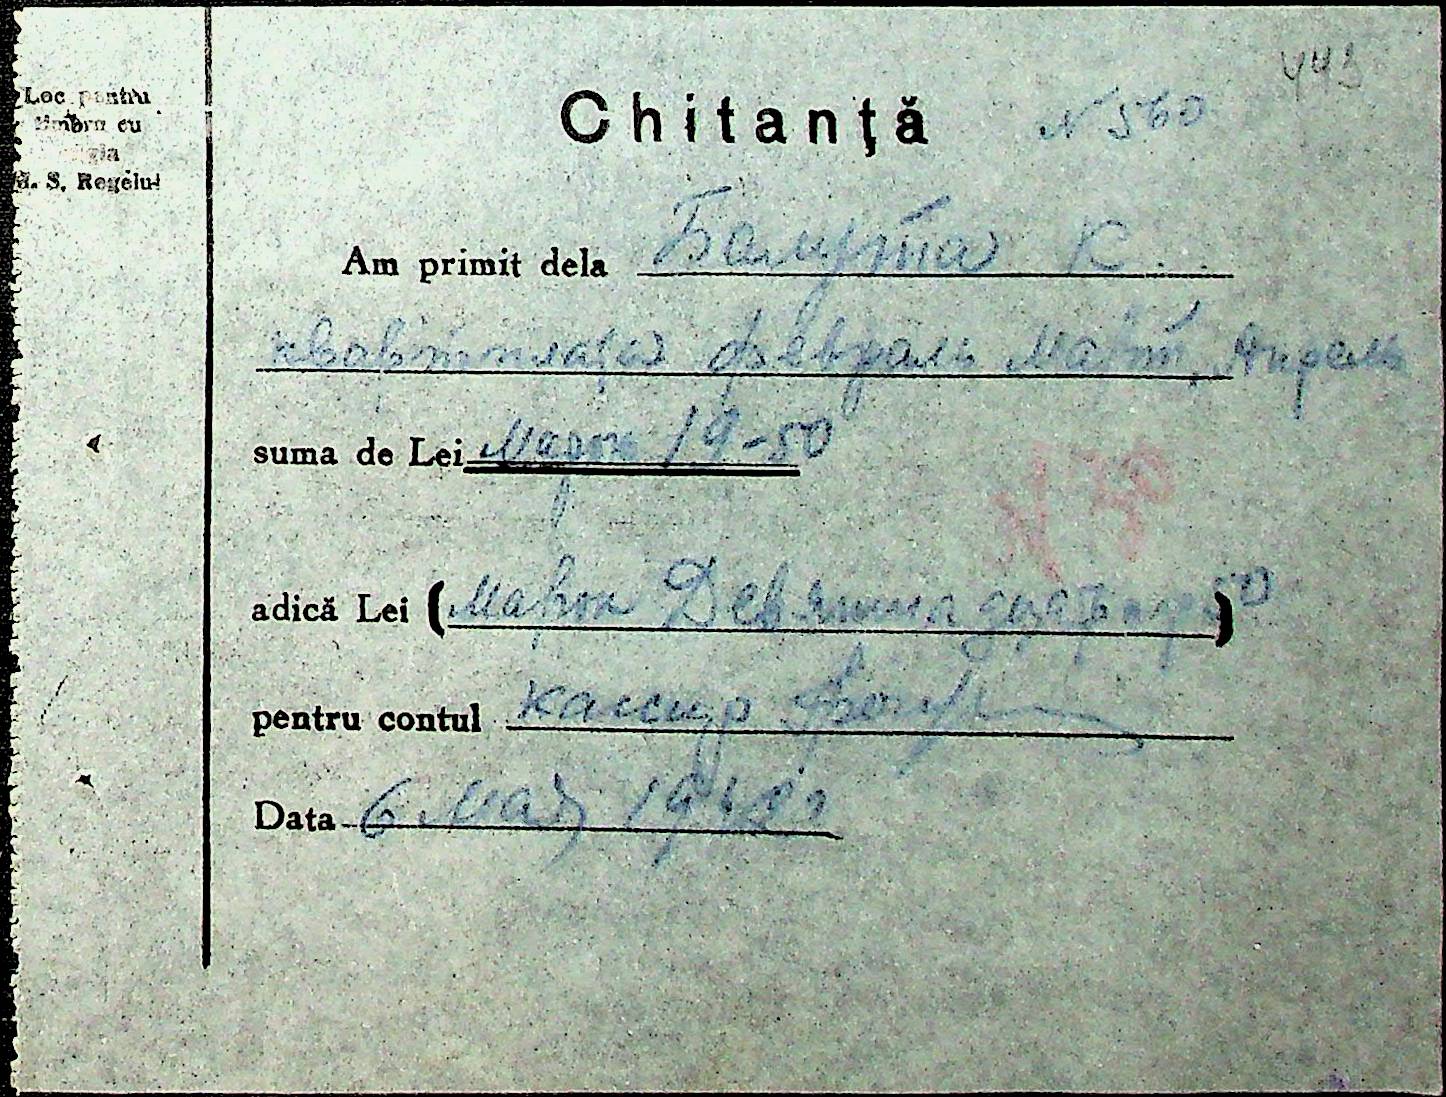 Loc pentru
timbru cu
M. S. Regelui
449
Chitanță № 560
Am primit dela Балута К.
квартплата февраль Март, Апрель
suma de Lei Марок 19-50
№ 70
adică Lei (Марок Девятнадцать 50)
pentru contul кассир
Data 6 Мая